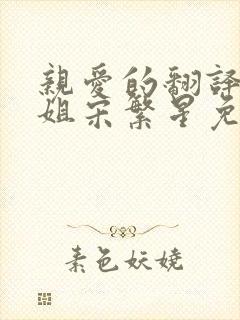 親愛的翻譯
姐宋繁星免
素色妖嬈